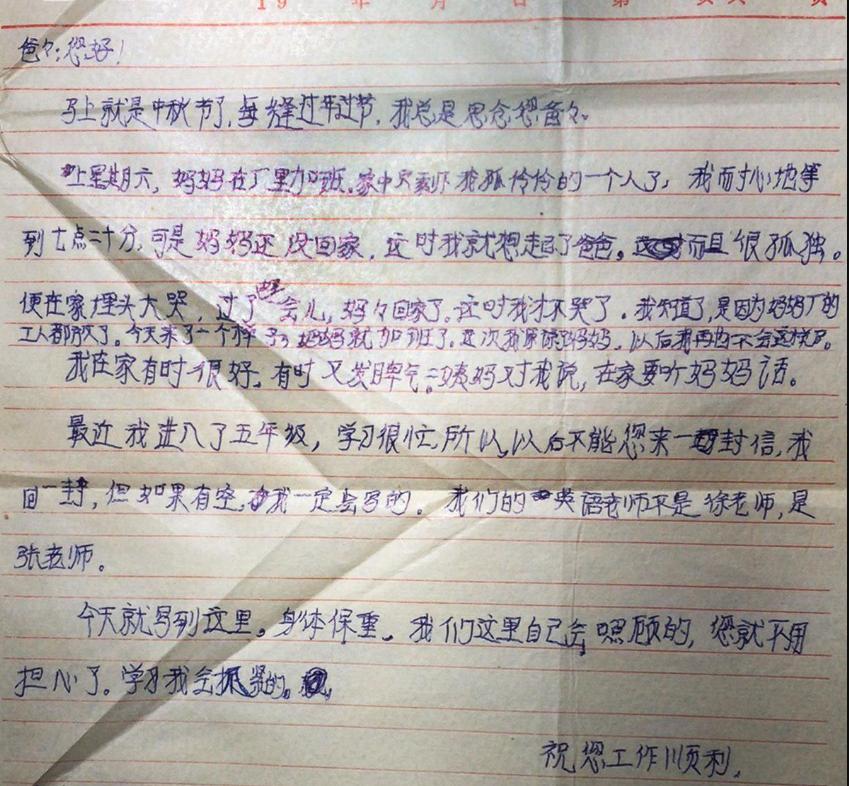 19 年 月 日 第 页
爸々:您好!
马上就是中秋节了,每缝过年过节,我总是思念您爸々。
上星期六,妈妈在厂里加班。家中只剩下我孤伶伶的一个人了,我而心地等
到七点二十分,可是妈妈还没回家,这时我就想起了爸爸。而且很孤独。
便在家埋头大哭,过了会儿,妈々回家了。这时我才不哭了。我知道了,是因为妈妈厂的
工人都放了。今天来了一个样子,妈妈就加班了。这次我原谅妈妈。以后我再也不会这样了。
我在家有时很好。有时又发脾气。二姨妈对我说,在家要听妈妈话。
最近我进入了五年级,学习很忙,所以,以后不能您来一封信,我
回一封,但如果有空,我一定会写的。我们的英语老师不是徐老师,是
张老师。
今天就写到这里。身体保重。我们这里自己会照顾的,您就不用
担心了。学习我会抓紧的。
祝您工作顺利,